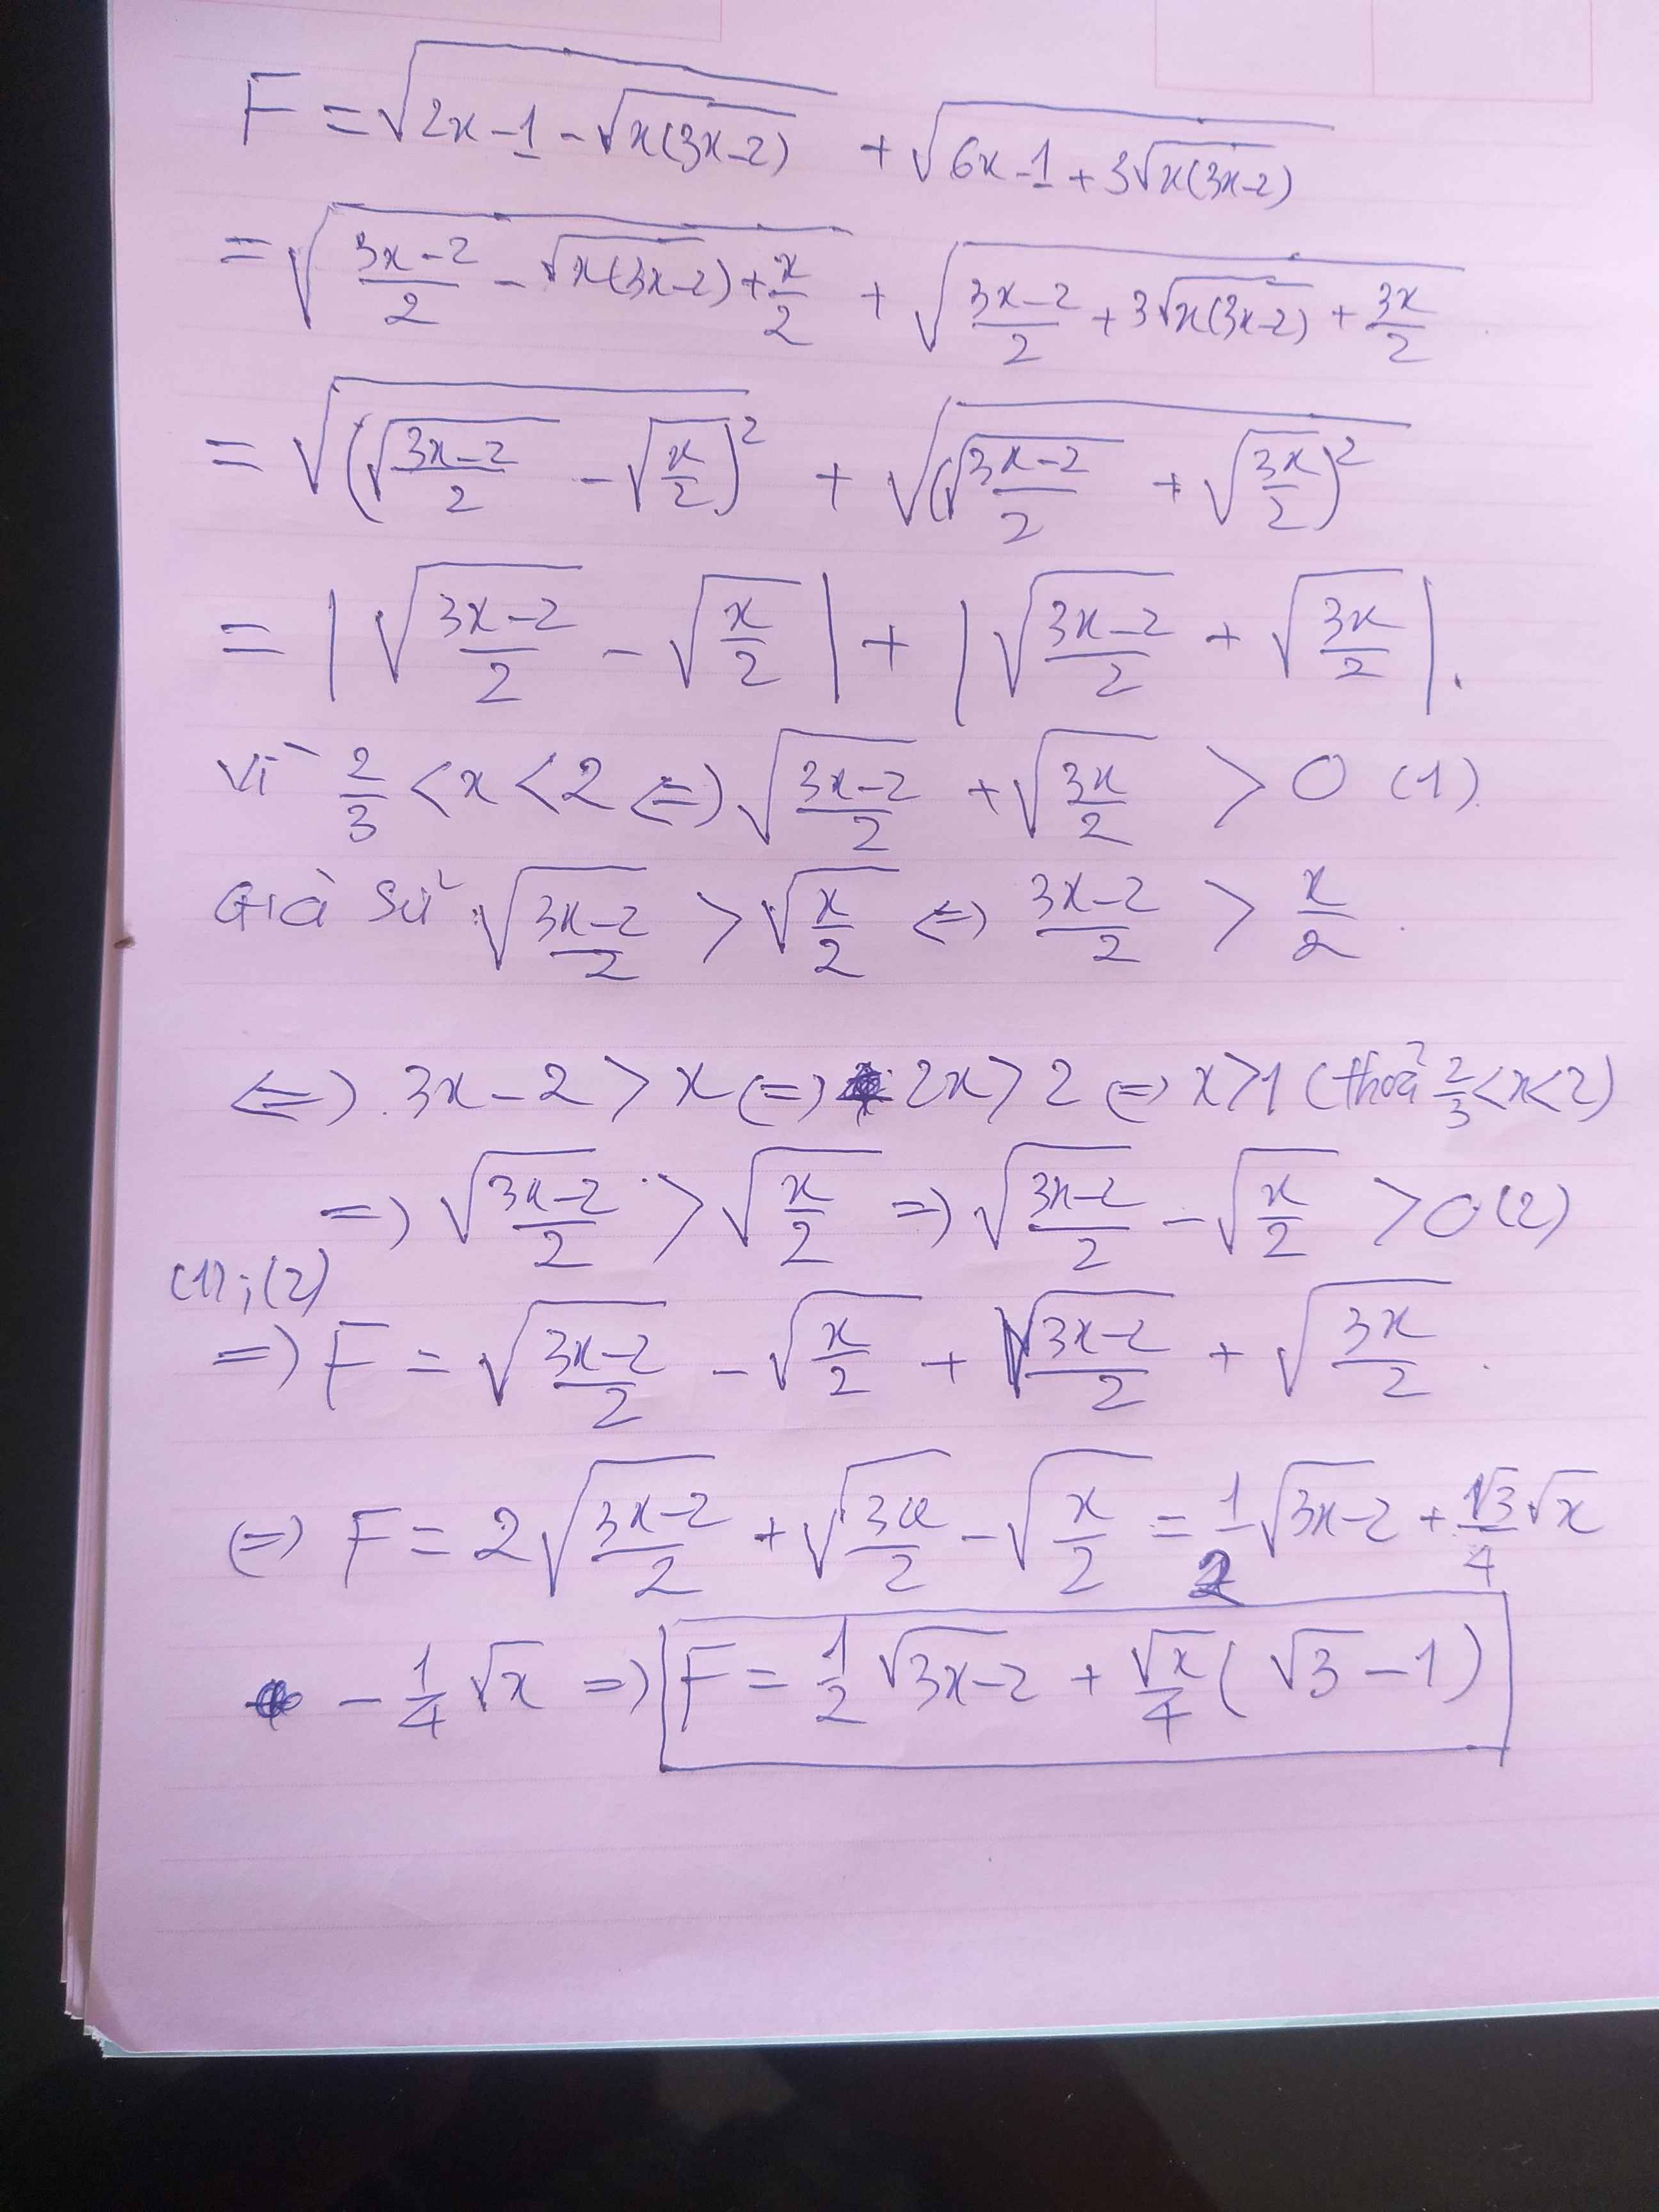 F = √(2x-1-√(x(3x-2))) + √(6x-1+3√(x(3x-2)))
= √((3x-2)/2 - √(x(3x-2)) + x/2) + √((3x-2)/2 + 3√(x(3x-2)) + 3x/2)
= √((√((3x-2)/2) - √(x/2))²) + √((√((3x-2)/2) + √(3x/2))²)
= |√((3x-2)/2) - √(x/2)| + |√((3x-2)/2) + √(3x/2)|.
Vì 2/3 < x < 2 ⇔ √((3x-2)/2) + √(3x/2) > 0 (1)
Giả sử √((3x-2)/2) > √(x/2) ⇔ (3x-2)/2 > x/2
⇔ 3x-2 > x ⇔ 2x > 2 ⇔ x > 1 (thoả 2/3 < x < 2)
⇒ √((3x-2)/2) > √(x/2) ⇒ √((3x-2)/2) - √(x/2) > 0 (2)
(1); (2)
⇒ F = √((3x-2)/2) - √(x/2) + √((3x-2)/2) + √(3x/2).
⇔ F = 2√((3x-2)/2) + √(3x/2) - √(x/2) = 1/2 √(3x-2) + 1√3/4 √x
- 1/4 √x ⇒ F = 1/2 √(3x-2) + √x/4 (√3 - 1)